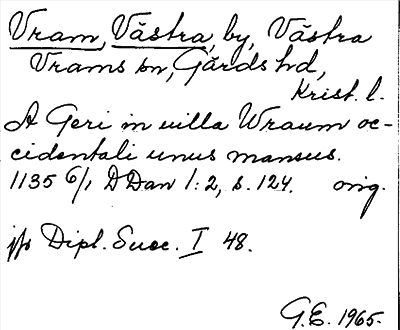 Vram, Västra, by, Västra
Vrams sn, Gärds hd,
Krist. l.
A Geri in uilla Wraum oc-
cidentali unus mansus.
1135 6/1 DDan 1:2, s. 124. orig.
jfr Dipl. Suec. I 48.
G.E. 1965.